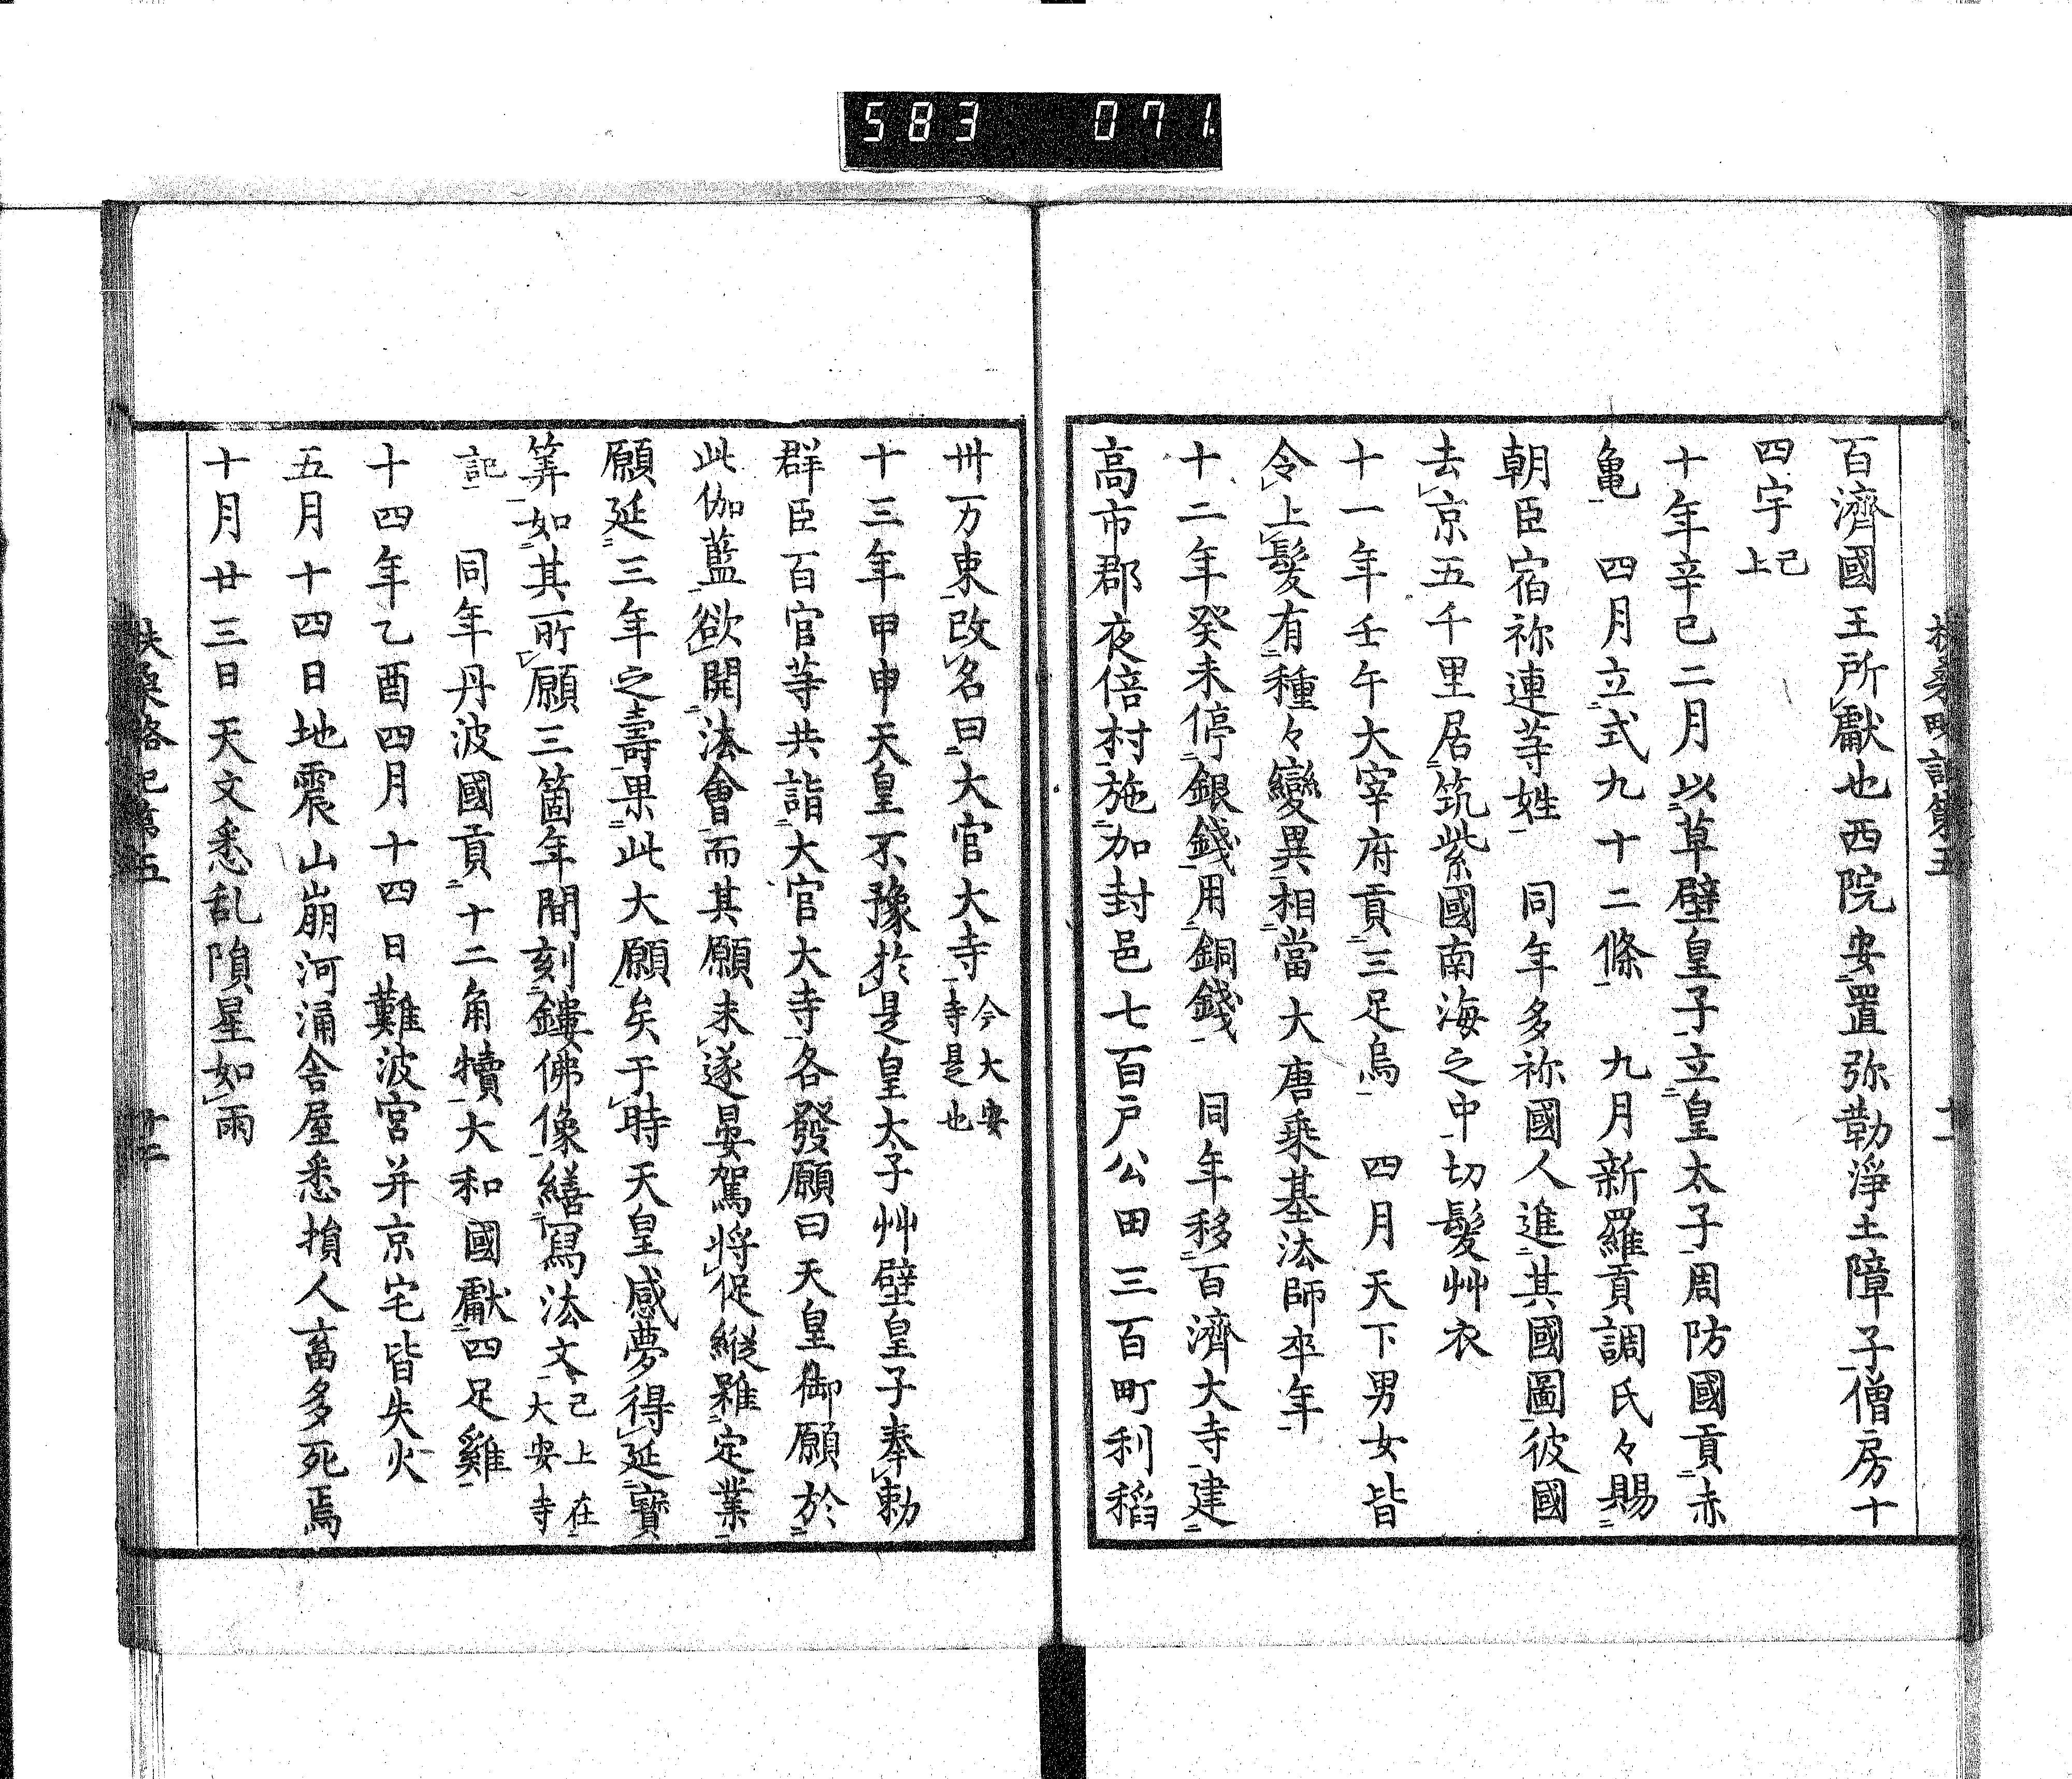 583 071
扶桑略記第五 十一
百濟國王所獻也西院安置弥勒淨土障子僧房十
四宇已上
十年辛已二月以草壁皇子立皇太子周防國貢赤
亀 四月立式九十二條 九月新羅貢調氏々賜
朝臣宿祢連等姓 同年多祢國人進其國圖彼國
去京五千里居筑紫國南海之中切髮艸衣
十一年壬午大宰府貢三足烏 四月天下男女皆
令上髮有種々變異相當大唐乘基法師卒年
十二年癸未停銀錢用銅錢 同年移百濟大寺建
高市郡夜倍村施加封邑七百戸公田三百町利稻
卅万束改名曰大官大寺今大安寺是也
十三年甲申天皇不豫於是皇太子艸壁皇子奉勅
群臣百官等共詣大官大寺各發願曰天皇御願於
此伽藍欲開法會而其願未遂晏駕將促縱雖定業
願延三年之壽果此大願矣于時天皇感夢得延寳
筭如其所願三箇年間刻鏤佛像繕寫法文已上在大安寺
記 同年丹波國貢十二角犢大和國獻四足雞
十四年乙酉四月十四日難波宮并京宅皆失火
五月十四日地震山崩河涌舎屋悉損人畜多死焉
十月廿三日天文悉乱隕星如雨
扶桑略記第五 十二